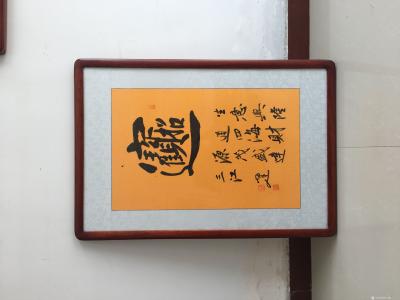 招財進寶
生意興隆
通四海財
源茂盛達
三江